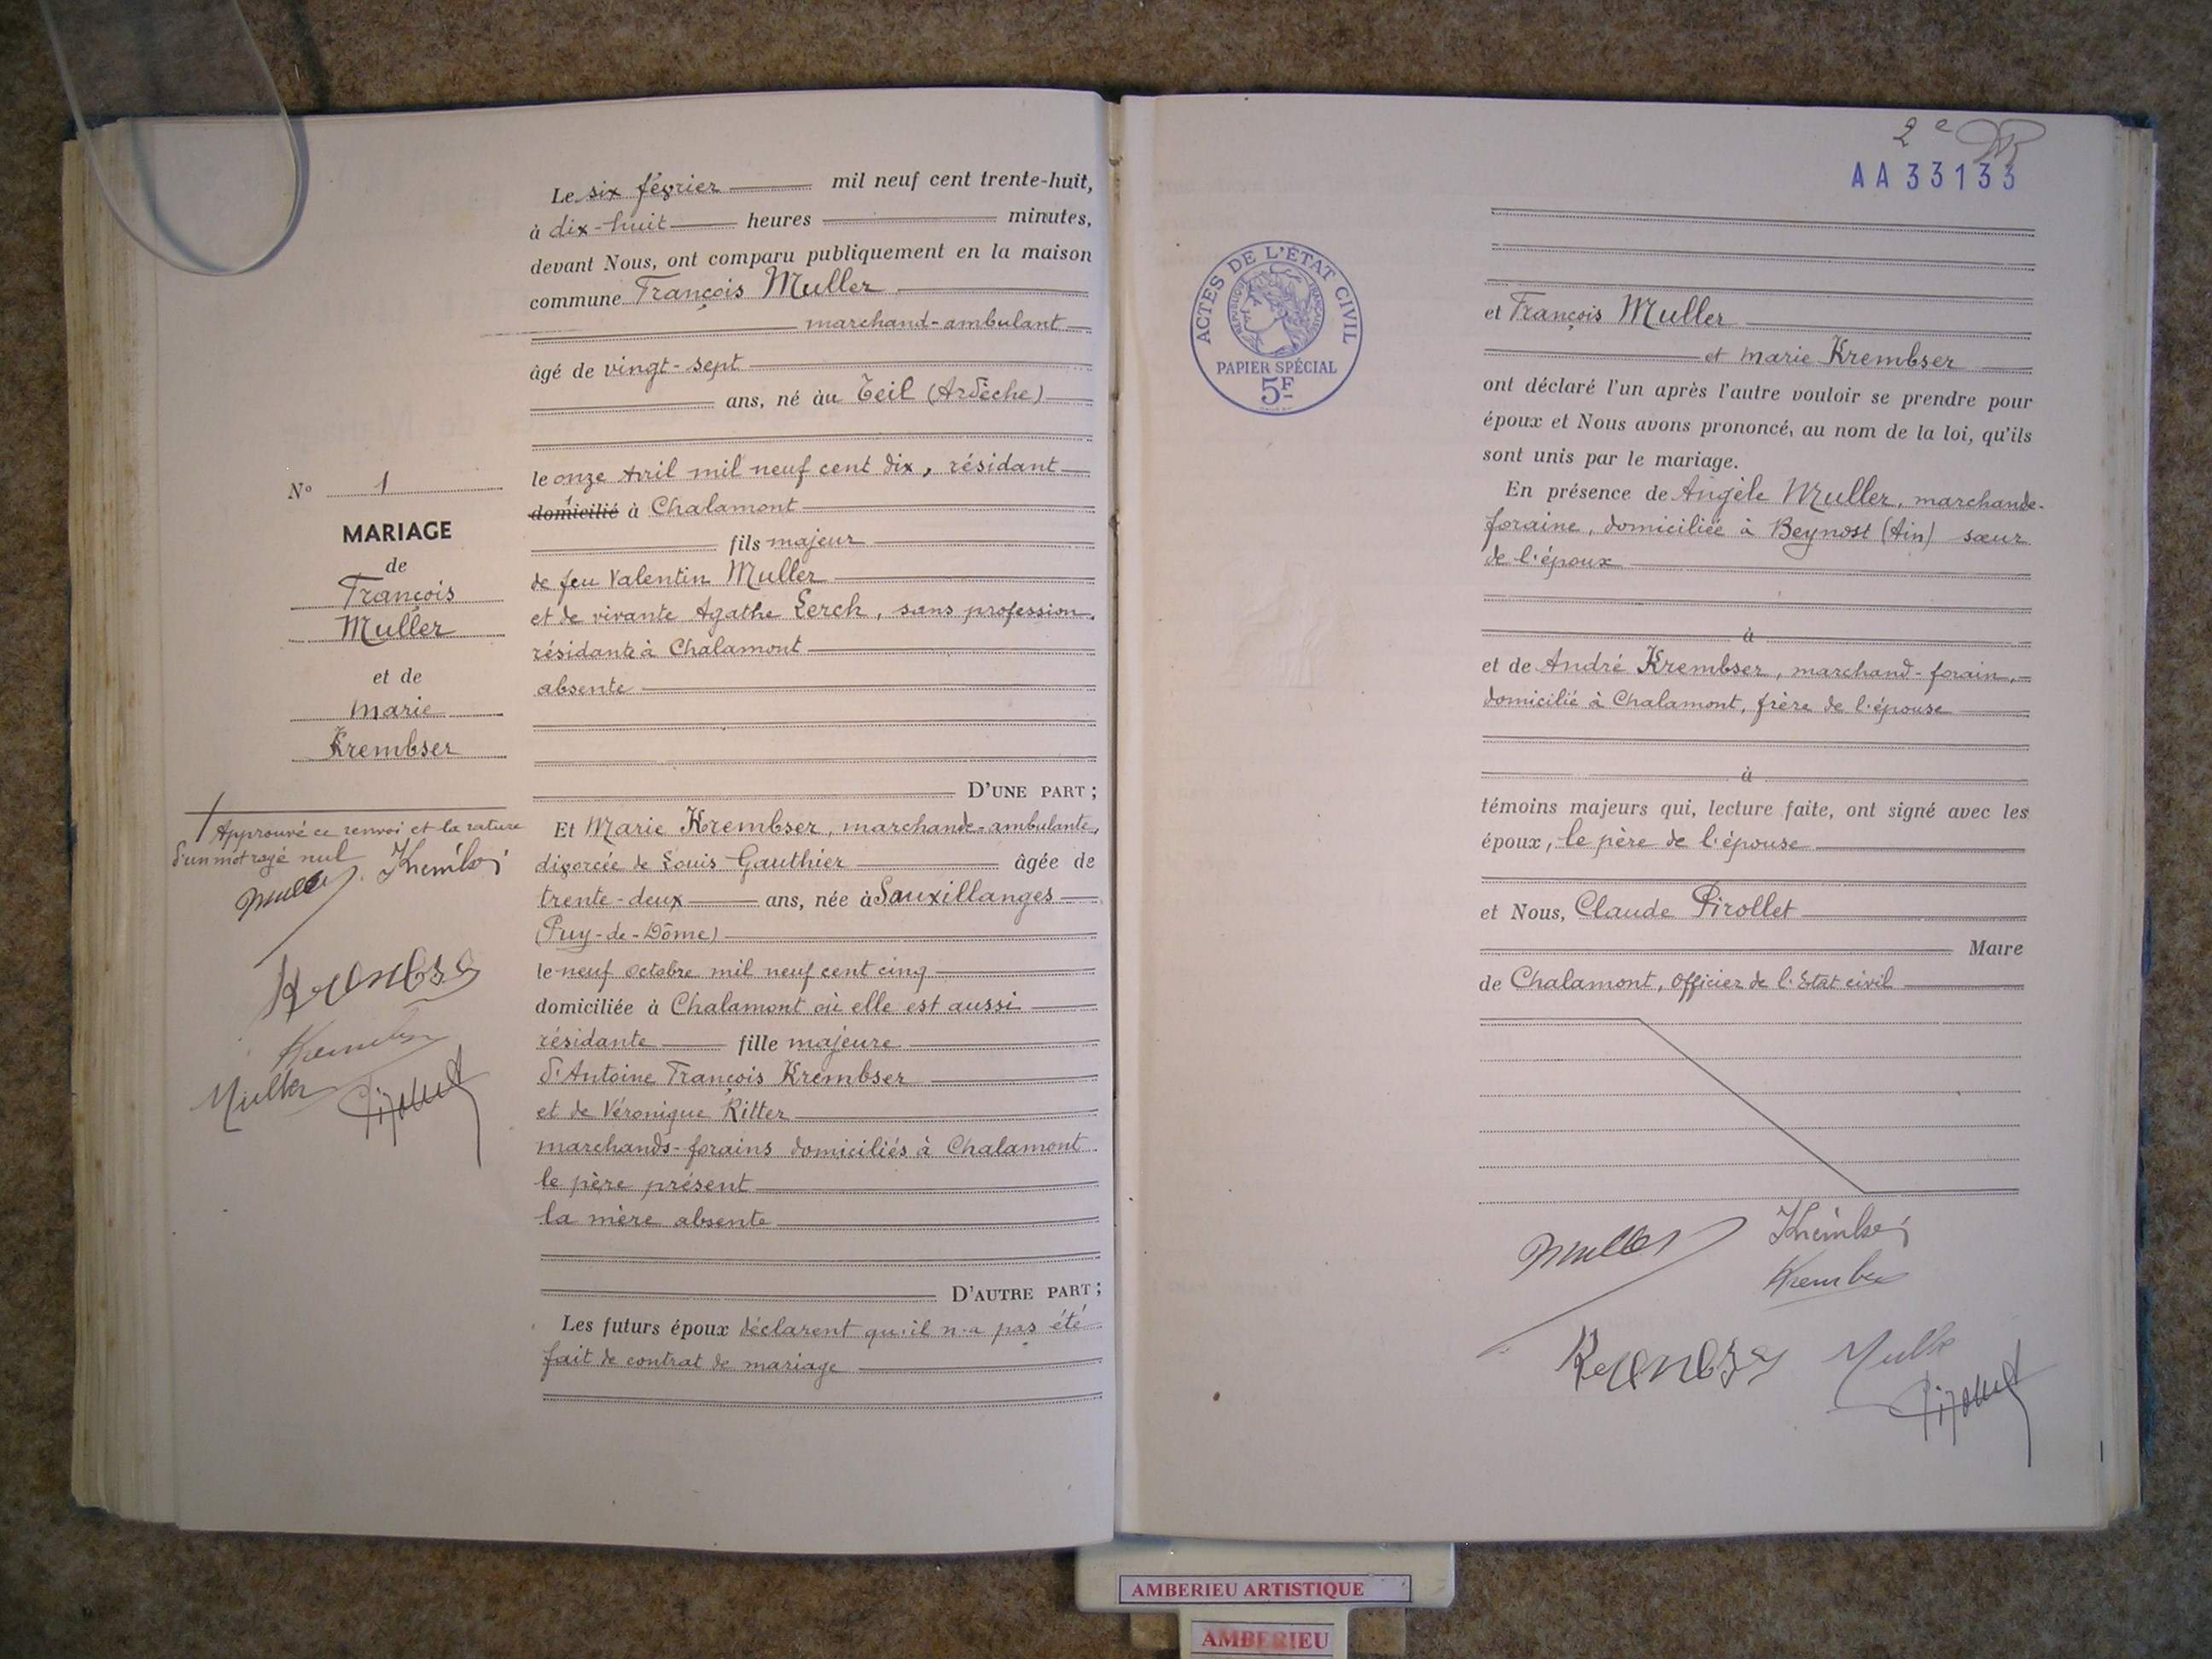 Le six février mil neuf cent trente-huit,
à dix-huit heures minutes,
devant Nous, ont comparu publiquement en la maison
commune François Muller
marchand-ambulant
âgé de vingt-sept
ans, né au Teil (Ardèche)
le onze Avril mil neuf cent dix, résidant
domicilié à Chalamont
fils majeur
de feu Valentin Muller
et de vivante Agathe Lerch, sans profession,
résidante à Chalamont
absente
D'UNE PART ;
Et Marie Krembser, marchande-ambulante,
divorcée de Louis Gauthier âgée de
trente-deux ans, née à Sauxillanges
(Puy-de-Dôme)
le neuf octobre mil neuf cent cinq
domiciliée à Chalamont où elle est aussi
résidante fille majeure
d'Antoine François Krembser
et de Véronique Ritter
marchands-forains domiciliés à Chalamont
le père présent
la mère absente
D'AUTRE PART ;
Les futurs époux déclarent qu'il n'a pas été
fait de contrat de mariage
N° 1
MARIAGE
de
François
Muller
et de
Marie
Krembser
Approuvé ce renvoi et la rature
d'un mot rayé nul
Muller
Muller
2e
AA33133
ACTES DE L'ÉTAT CIVIL
RÉPUBLIQUE FRANÇAISE
PAPIER SPÉCIAL
5F
et François Muller
et Marie Krembser
ont déclaré l'un après l'autre vouloir se prendre pour
époux et Nous avons prononcé, au nom de la loi, qu'ils
sont unis par le mariage.
En présence de Angèle Muller, marchande-
foraine, domiciliée à Beynost (Ain) sœur
de l'époux
à
et de André Krembser, marchand-forain,
domicilié à Chalamont, frère de l'épouse
à
témoins majeurs qui, lecture faite, ont signé avec les
époux, le père de l'épouse
et Nous, Claude Pirollet
Maire
de Chalamont, Officier de l'Etat civil
Muller
AMBERIEU ARTISTIQUE
AMBERIEU